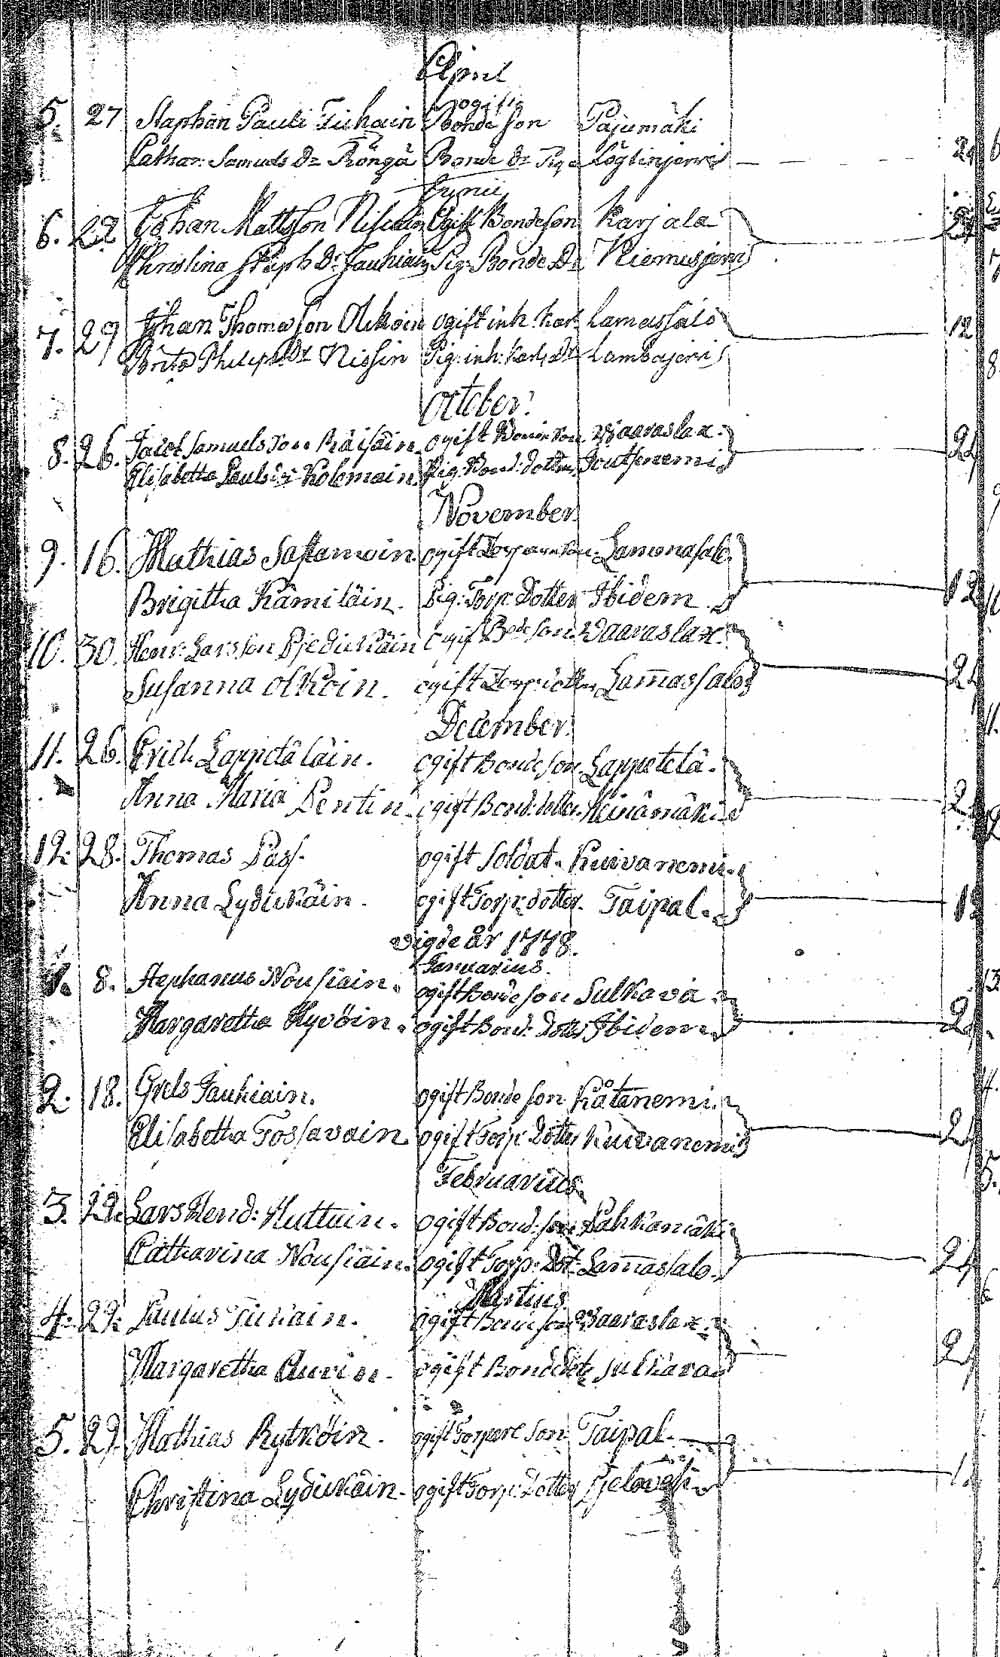 April
5. 27 Staphan Pauli Tiihain ogift Bonde son Pajumäki
Cathar: Samuels Dr Röngä Bonde Dr Pig
Junii
6. 22 Johan Mattsson Ogift Bondeson Karjala
Christina Staph Dr Jauhiain Pig: Bonde Dr Niemisjervi
7. 29 Johan Thomasson Olkoin ogift inh: karl Lamassalo 12
Brita Philip Dt Nissin Pig: inh: karls Dt
October:
8. 26. Jacob Samuelsson Räisäin ogift Waaraslax. 24
Elisabetha Paulsdr Kolemain Pig: Bond: dotter
November
9. 16. Mathias Sastamoin. ogift Lamonasalo 12
Brigitha Kämiläin. Pig: Torp: Dotter Ibidem
10. 30. Henr: Larsson ogift Bode son Waaraslax. 24
Susanna Olkoin. ogift Torp: dotter Lam̄assalo
December.
11. 26. Erich Lappetäläin. ogift Bondeson Lappetelä. 24
Anna Maria Pentin. ogift Bond: dotter Heinämäki
12. 28. Thomas Pass. ogift Soldat. Kuivanemi 12
Anna Lydikäin. ogift Torp: dotter. Taipal.
Vigde år 1778.
Januarius.
1. 8. Stephanus Nousiain. ogift Bondeson Sulkava 24
Margaretha Hyvöin. ogift Bond: Dotter Ibidem
2. 18. Grels Jauhiain. ogift Bonde son Kåtanemi. 24
Elisabetha Tossavain ogift Torp: Dotter Kuivanemi
Februarius.
3. 22. Lars Hend: Huttuin. ogift Bond: son Sahkamäki 24
Catharina Nousiain. ogift Torp: Dot: Lam̄assalo.
Martius
4. 22. Paulus Tiihain. ogift Bondeson Waaraslax. 24
Margaretha Auvin. ogift Bonddot: Sulkava
5. 29. Mathias Rytköin. ogift Torpare son Taipal
Christina Lydikäin. ogift Torp: Dotter